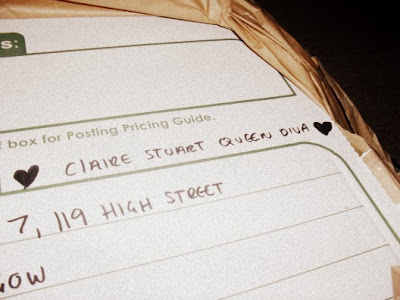 s:
box for Posting Pricing Guide.
♥ CLAIRE STUART QUEEN DIVA ♥
7, 119 HIGH STREET
OW